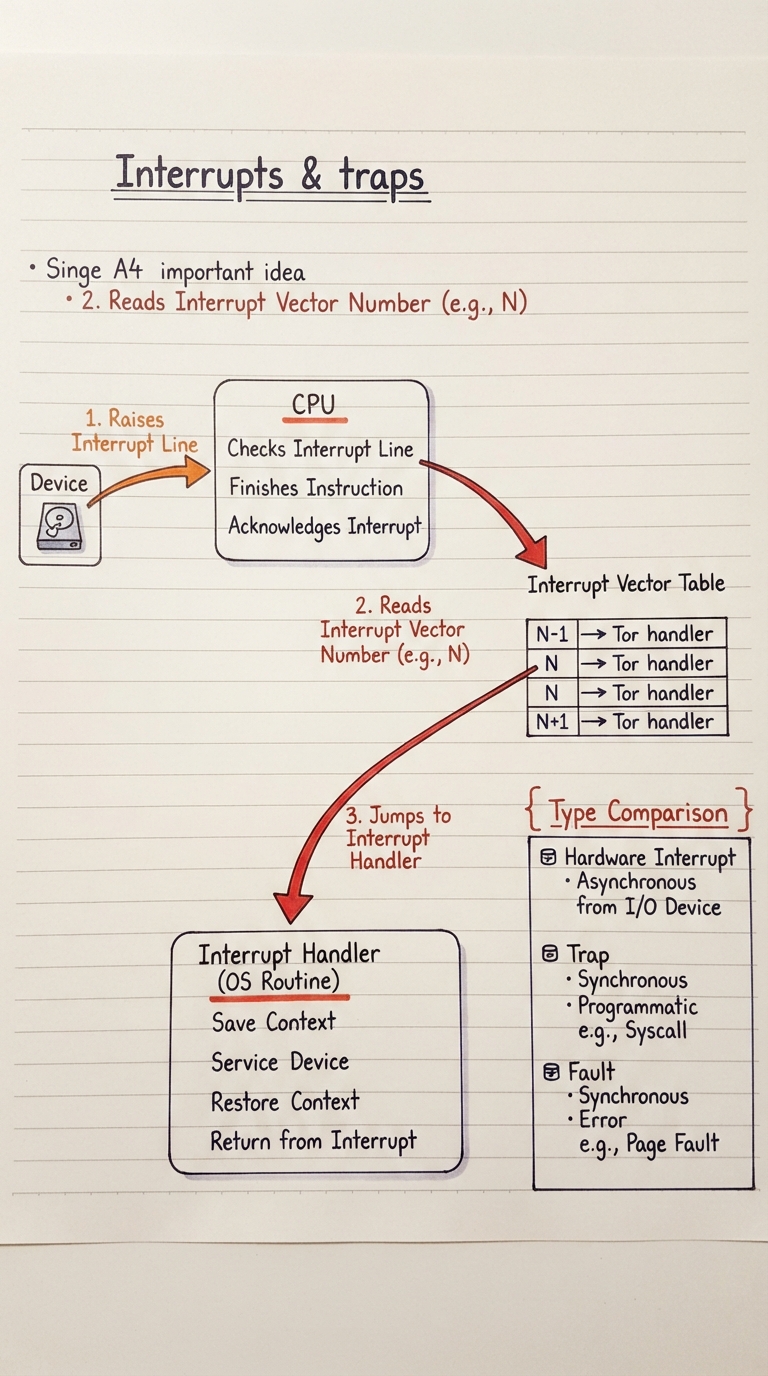 Interrupts & traps
• Singe A4 important idea
• 2. Reads Interrupt Vector Number (e.g., N)
1. Raises
Interrupt Line
Device
CPU
Checks Interrupt Line
Finishes Instruction
Acknowledges Interrupt
2. Reads
Interrupt Vector
Number (e.g., N)
Interrupt Vector Table
N-1 → Tor handler
N → Tor handler
N → Tor handler
N+1 → Tor handler
3. Jumps to
Interrupt
Handler
Interrupt Handler
(OS Routine)
Save Context
Service Device
Restore Context
Return from Interrupt
{ Type Comparison }
Hardware Interrupt
• Asynchronous
from I/O Device
Trap
• Synchronous
• Programmatic
e.g., Syscall
Fault
• Synchronous
• Error
e.g., Page Fault